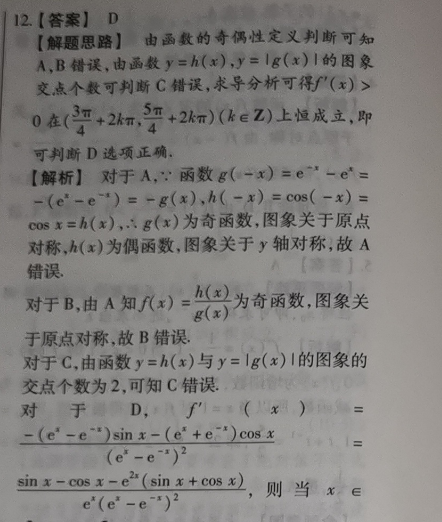 12.【答案】 D
【解题思路】 由函数的奇偶性定义判断可知
A,B错误,由函数 y=h(x),y=|g(x)|的图象
交点个数可判断 C 错误,求导分析可得f′(x)>
0 在(3π/4+2kπ,5π/4+2kπ)(k∈Z)上恒成立,即
可判断 D 选项正确.
【解析】 对于 A,∵ 函数 g(-x)=e^{-x}-e^{x}=
-(e^{x}-e^{-x})=-g(x),h(-x)=cos(-x)=
cos x=h(x),∴g(x)为奇函数,图象关于原点
对称,h(x)为偶函数,图象关于 y 轴对称,故 A
错误.
对于 B,由 A 知 f(x)=h(x)/g(x)为奇函数,图象关
于原点对称,故 B 错误.
对于 C,由函数 y=h(x)与 y=|g(x)|的图象的
交点个数为 2,可知 C 错误.
对 于 D, f′ ( x ) =
-(e^{x}-e^{-x})sin x-(e^{x}+e^{-x})cos x/(e^{x}-e^{-x})^{2} =
sin x-cos x-e^{2x}(sin x+cos x)/e^{x}(e^{x}-e^{-x})^{2}, 则 当 x ∈